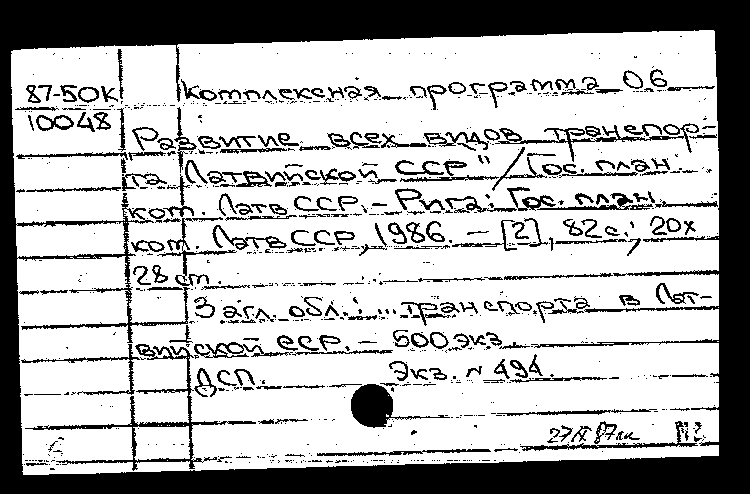 87-50К Комплексная программа 06
10048 "Развитие всех видов транспор-
та Латвийской ССР" / Гос. план.
ком. Латв ССР. - Рига: Гос. план.
ком. Латв ССР, 1986. - [2], 82 с.; 20х
28 см.
Загл. обл.: ...транспорта в Лат-
вийской ССР. - 500 экз.
ДСП. Экз. N 494.
6